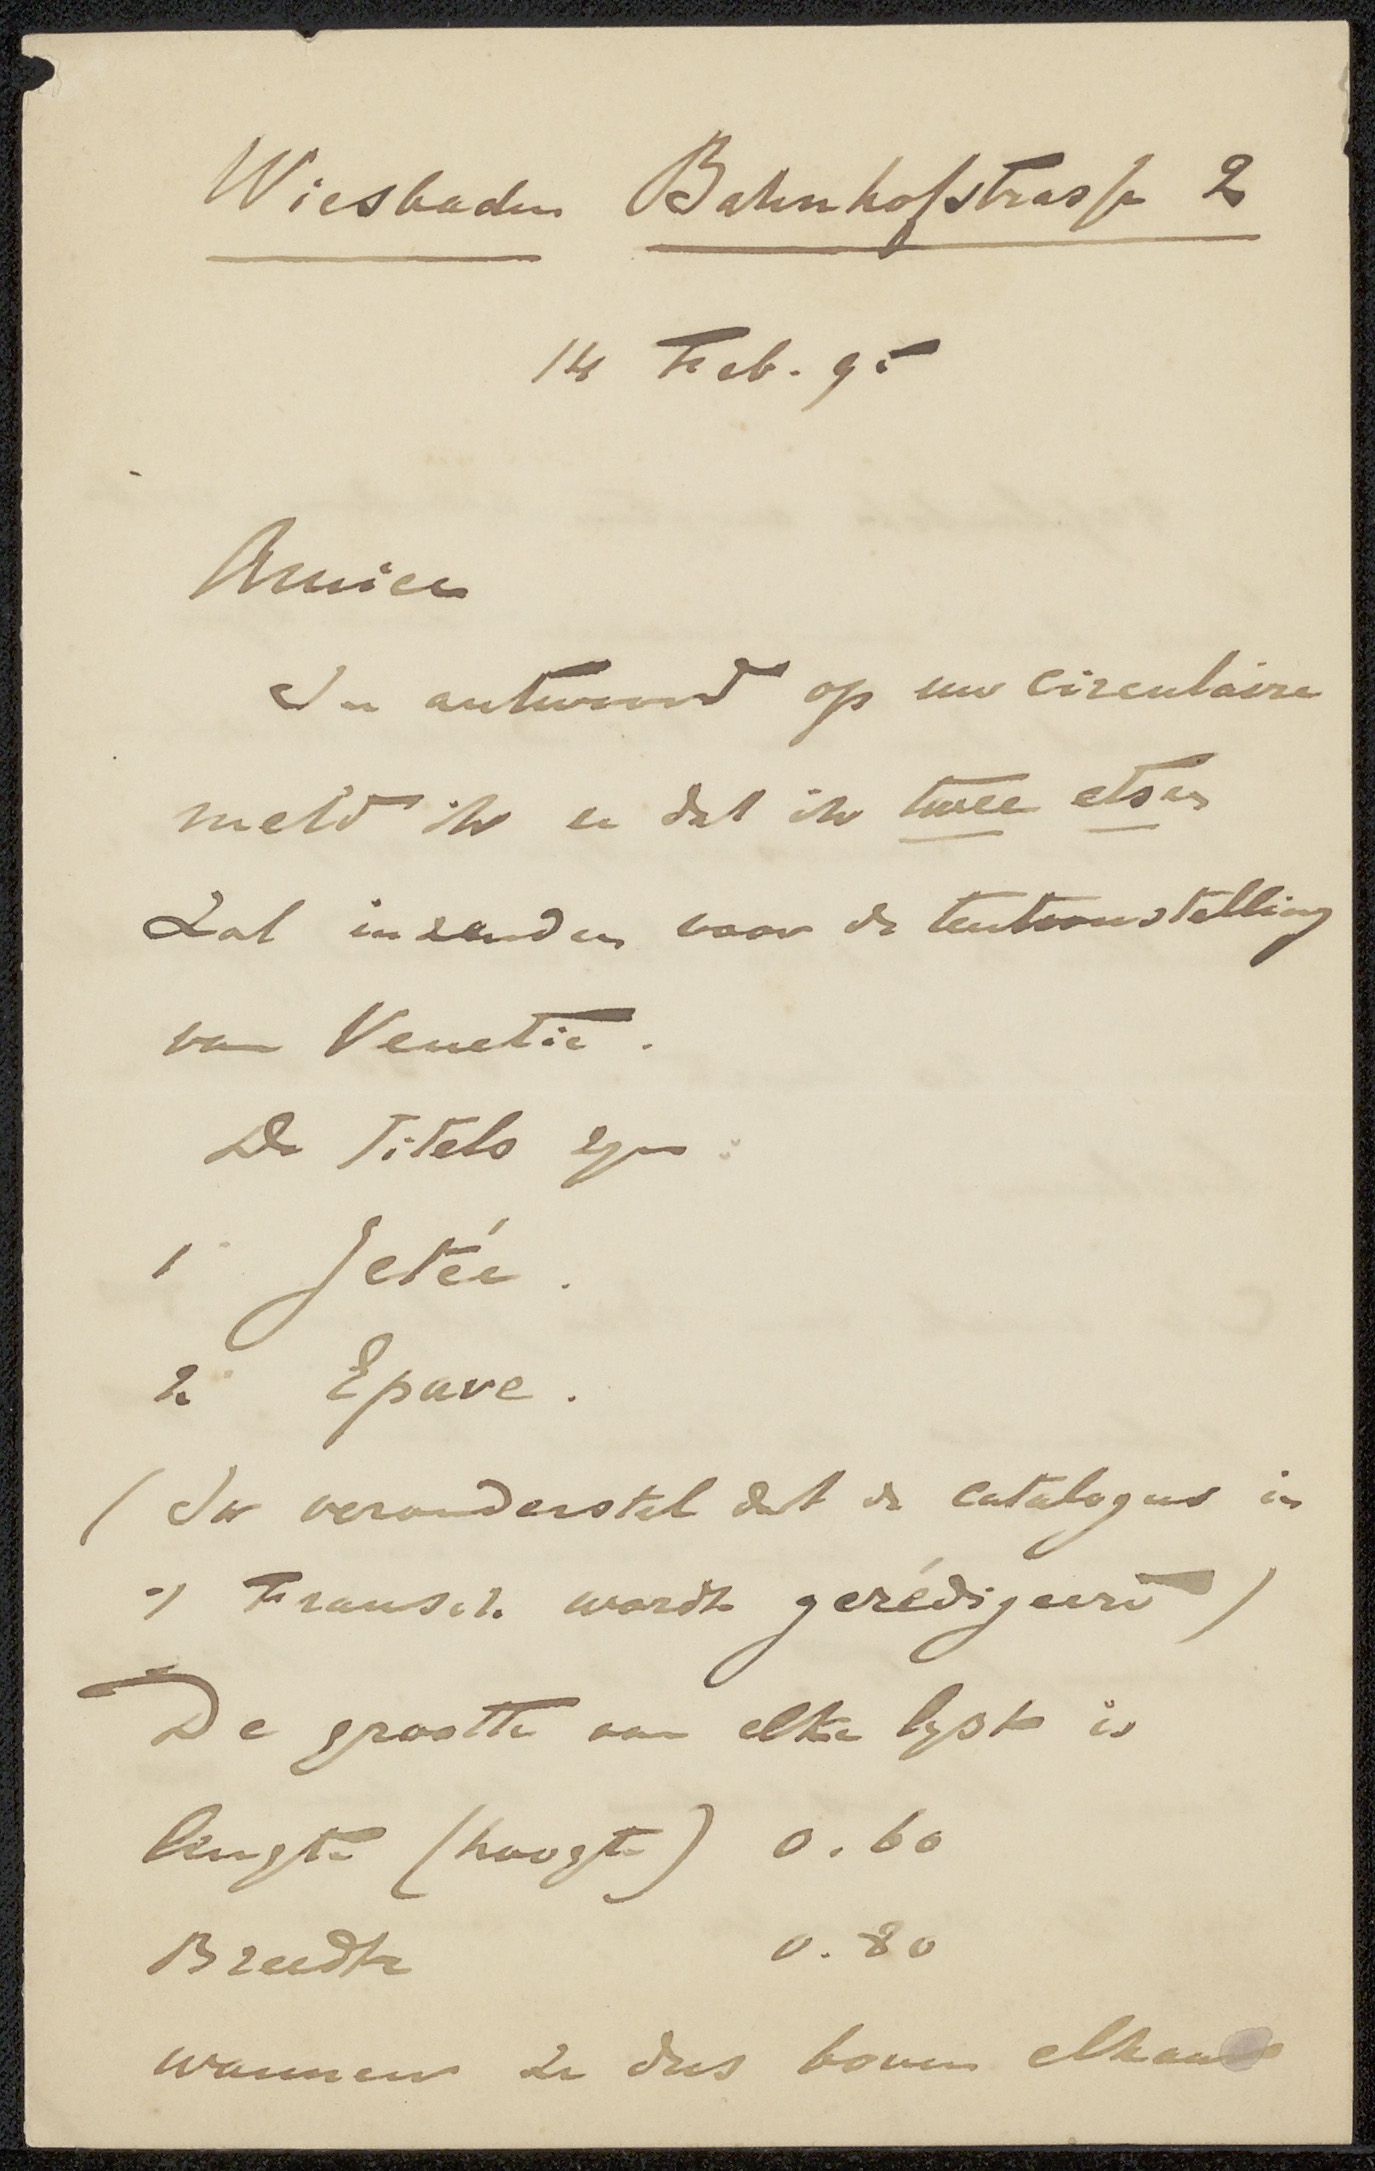 Wiesbaden Bahnhofstrasse 2
14 Feb. 95
Amice
In antwoord op uw circulaire
meld ik u dat ik twee etsen
zal inzenden voor de tentoonstelling
van Venetie.
De titels zyn:
1 Jetée.
2 Epave.
(Ik veronderstel dat de catalogus in
't Fransch wordt gerédigeerd)
De grootte van elke lyst is
lengte (hoogte) 0.60
Breedte 0.80
wanneer ze dus boven elkander